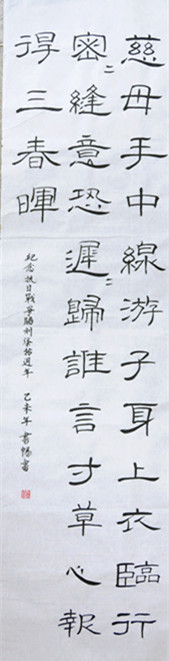 慈母手中線游子身上衣臨行
密二縫意恐遲二歸誰言寸草心報
得三春暉
紀念抗日戰爭勝利柒拾週年 乙未年 暢書